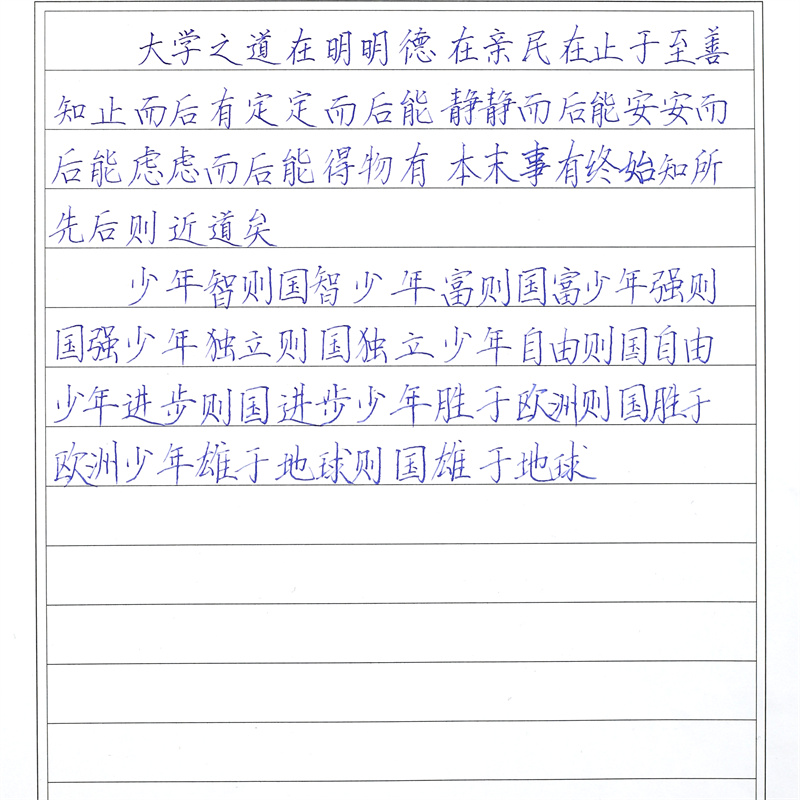 大学之道在明明德在亲民在止于至善
知止而后有定定而后能静静而后能安安而
后能虑虑而后能得物有本末事有终始知所
先后则近道矣
少年智则国智少年富则国富少年强则
国强少年独立则国独立少年自由则国自由
少年进步则国进步少年胜于欧洲则国胜于
欧洲少年雄于地球则国雄于地球